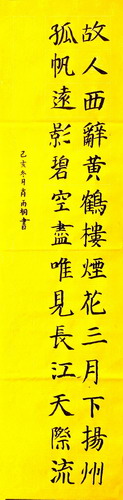 故人西辭黃鶴樓煙花三月下揚州
孤帆遠影碧空盡唯見長江天際流
己亥冬月薛雨桐書